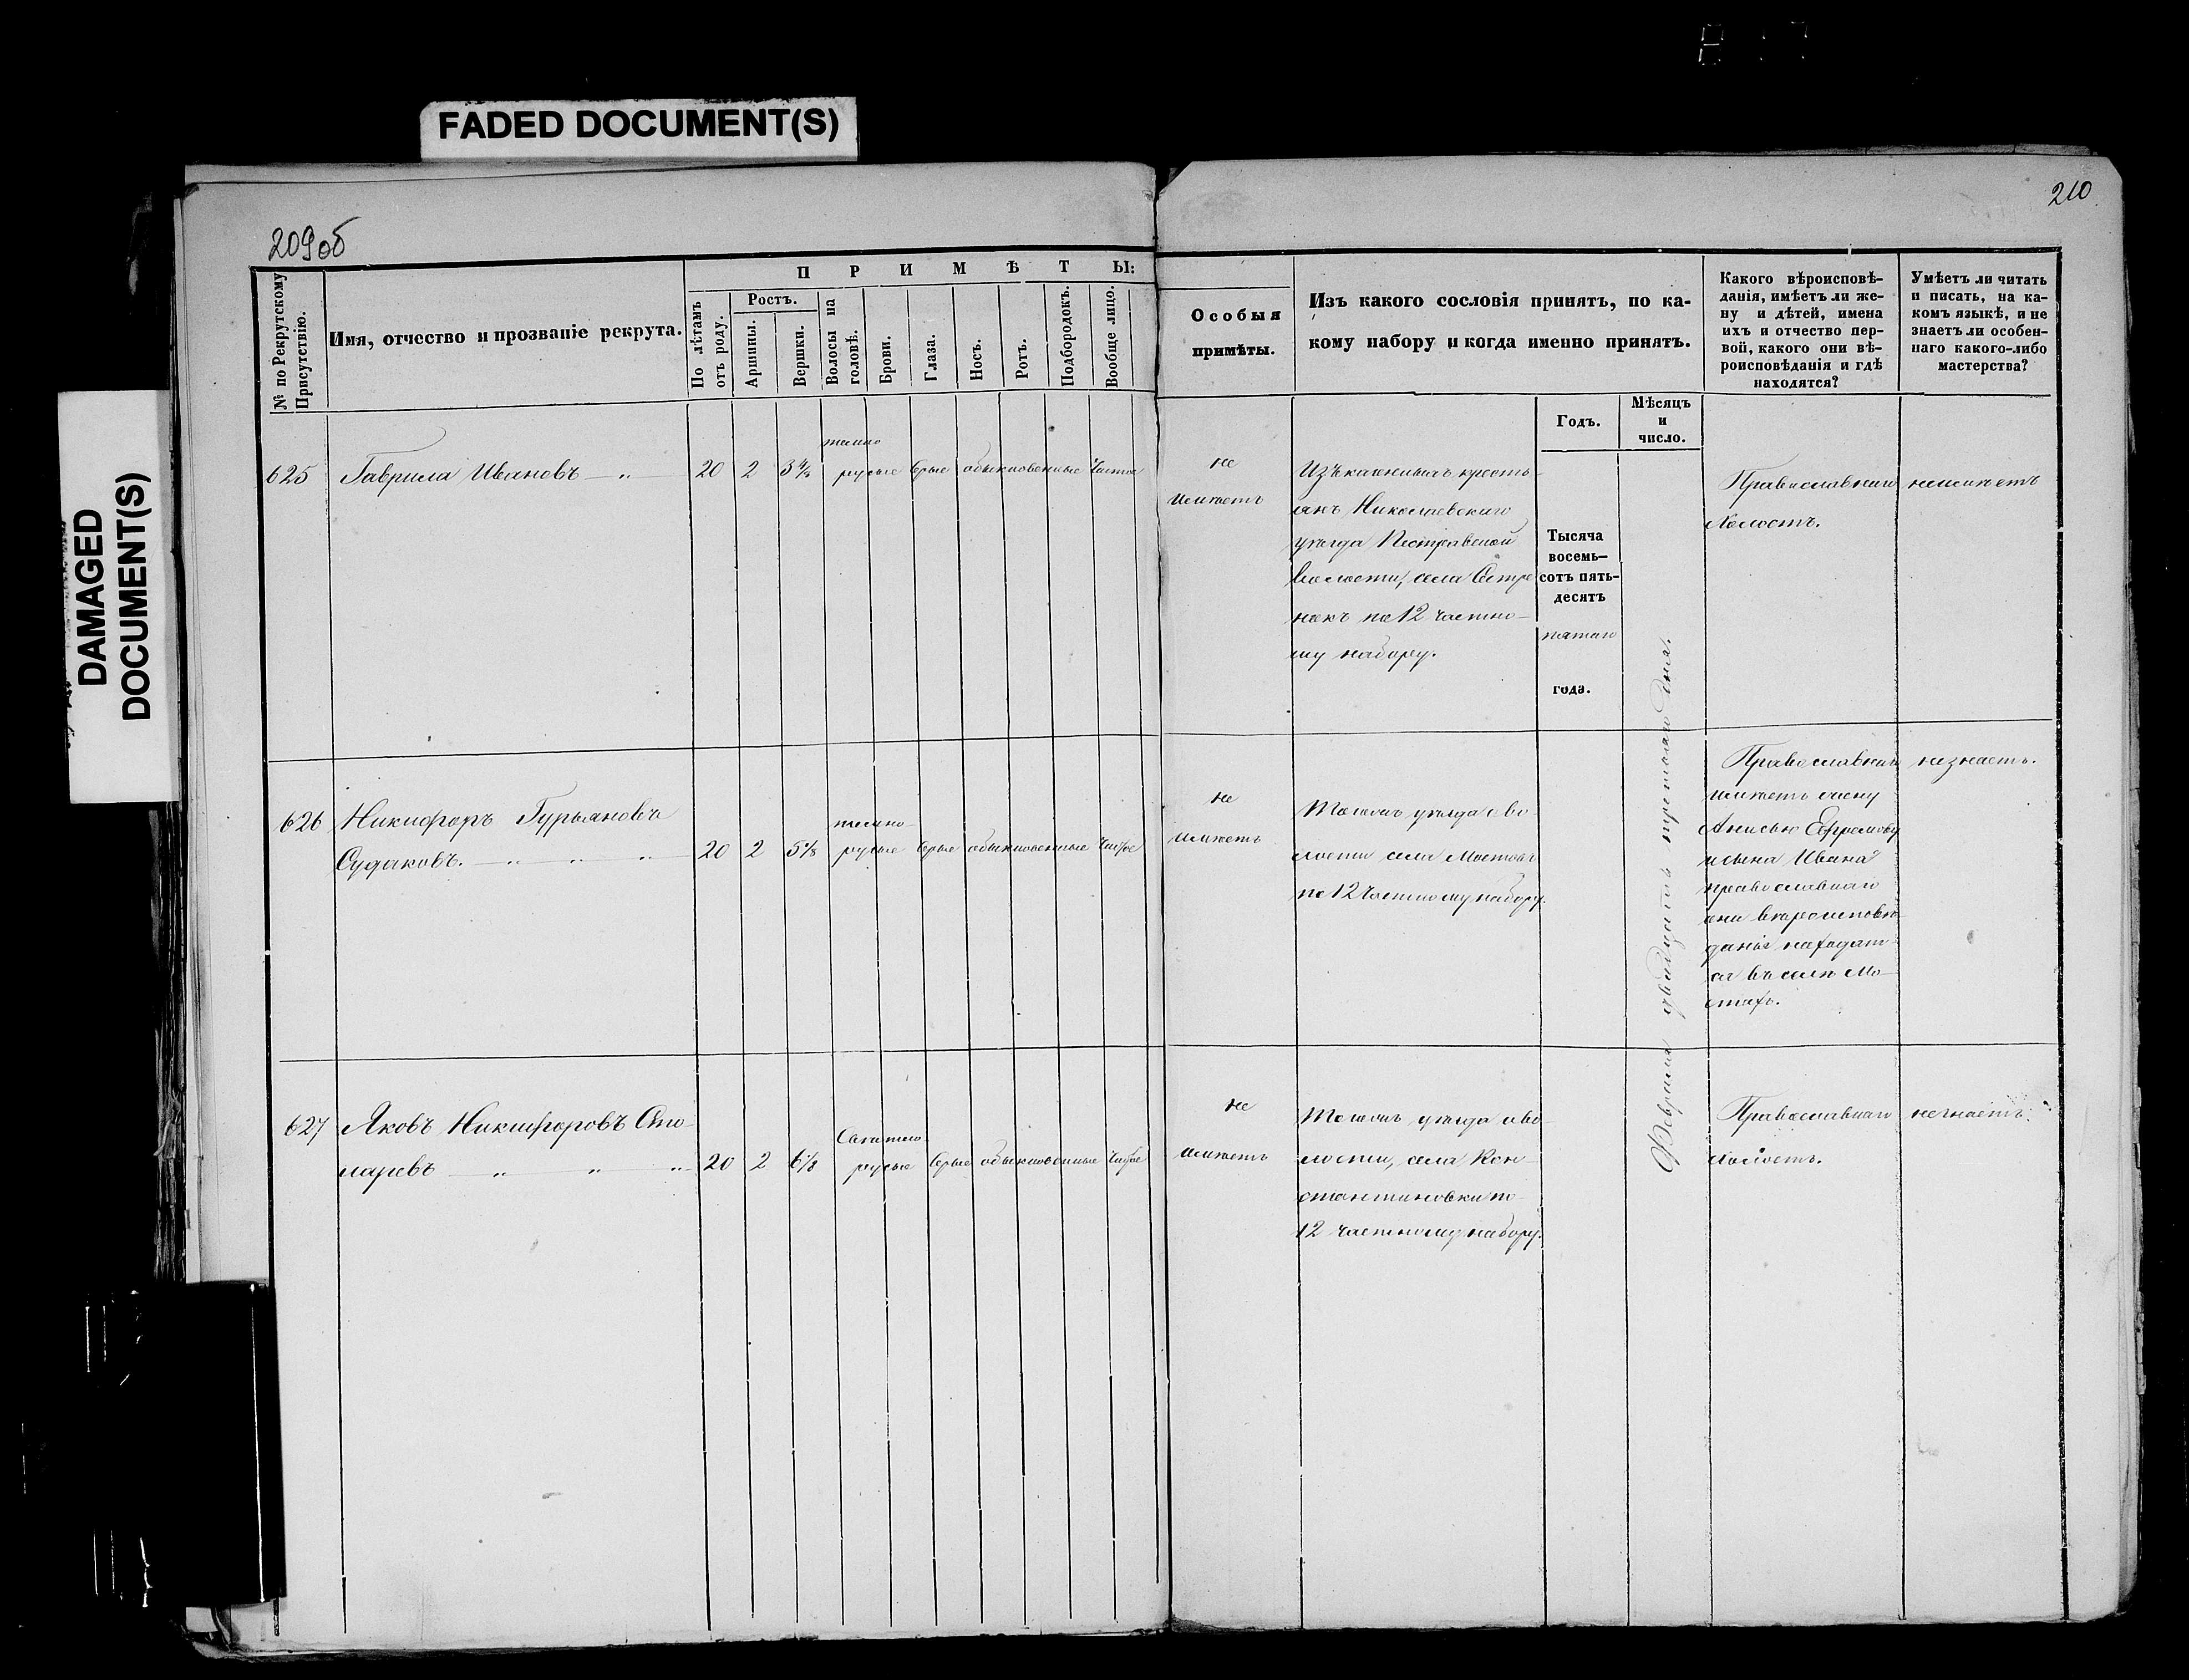 FADED DOCUMENT(S)
DAMAGED
DOCUMENT(S)
209об
210
№ по Рекрутскому
Присутствію.
Имя, отчество и прозваніе рекрута.
П Р И М Ѣ Т Ы:
По лѣтамъ
отъ роду.
Ростъ.
Аршины.
Вершки.
Волосы на
головѣ.
Брови.
Глаза.
Носъ.
Ротъ.
Подбородокъ.
Вообще лицо.
Особыя
примѣты.
Изъ какого сословія принятъ, по ка-
кому набору и когда именно принятъ.
Какого вѣроисповѣ-
данія, имѣетъ ли же-
ну и дѣтей, имена
ихъ и отчество пер-
вой, какого они вѣ-
роисповѣданія и гдѣ
находятся?
Умѣетъ ли читать
и писать, на ка-
комъ языкѣ, и не
знаетъ ли особен-
наго какого-либо
мастерства?
Годъ.
Мѣсяцъ
и
число.
625 Гаврила Ивановъ — „ —
20 2 3
темно
русые серые обыкновенные чистое
не
имѣетъ
Изъ казенныхъ кресть-
янъ Николаевскаго
уѣзда Пестравской
волости, села
по 12 частно-
му набору.
Тысяча
восемь-
сотъ пять-
десятъ
пятаго
года.
Февраля двадцать третьяго дня.
Православнаго
холостъ.
626 Никифоръ Гурьяновъ
Судаковъ. — „ — „ — „ —
20 2 5⅛
темно-
русые серые обыкновенные чистое
не
имѣетъ
Тогожъ уѣзда и во
лости села Мостовъ
по 12 частному набору.
Православнаго
имѣетъ жену
Анисью Ефремову
и сына Ивана
православнаго
они вѣроисповѣ-
данія находят-
ся въ селѣ Мо-
стахъ.
не знаетъ.
627 Яковъ Никифоровъ Сто-
ларевъ — „ „ „
20 2 6⅛
Светло-
русые серые обыкновенные чистое
не
имѣетъ
Тогожъ уѣзда и во-
лости, села Кон-
стантиновки по
12 частному набору.
Православнаго
холостъ.
не знаетъ.